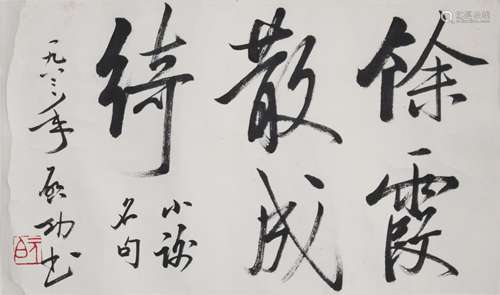 馀霞
散成
绮
小谢
名句
一九八三年启功书